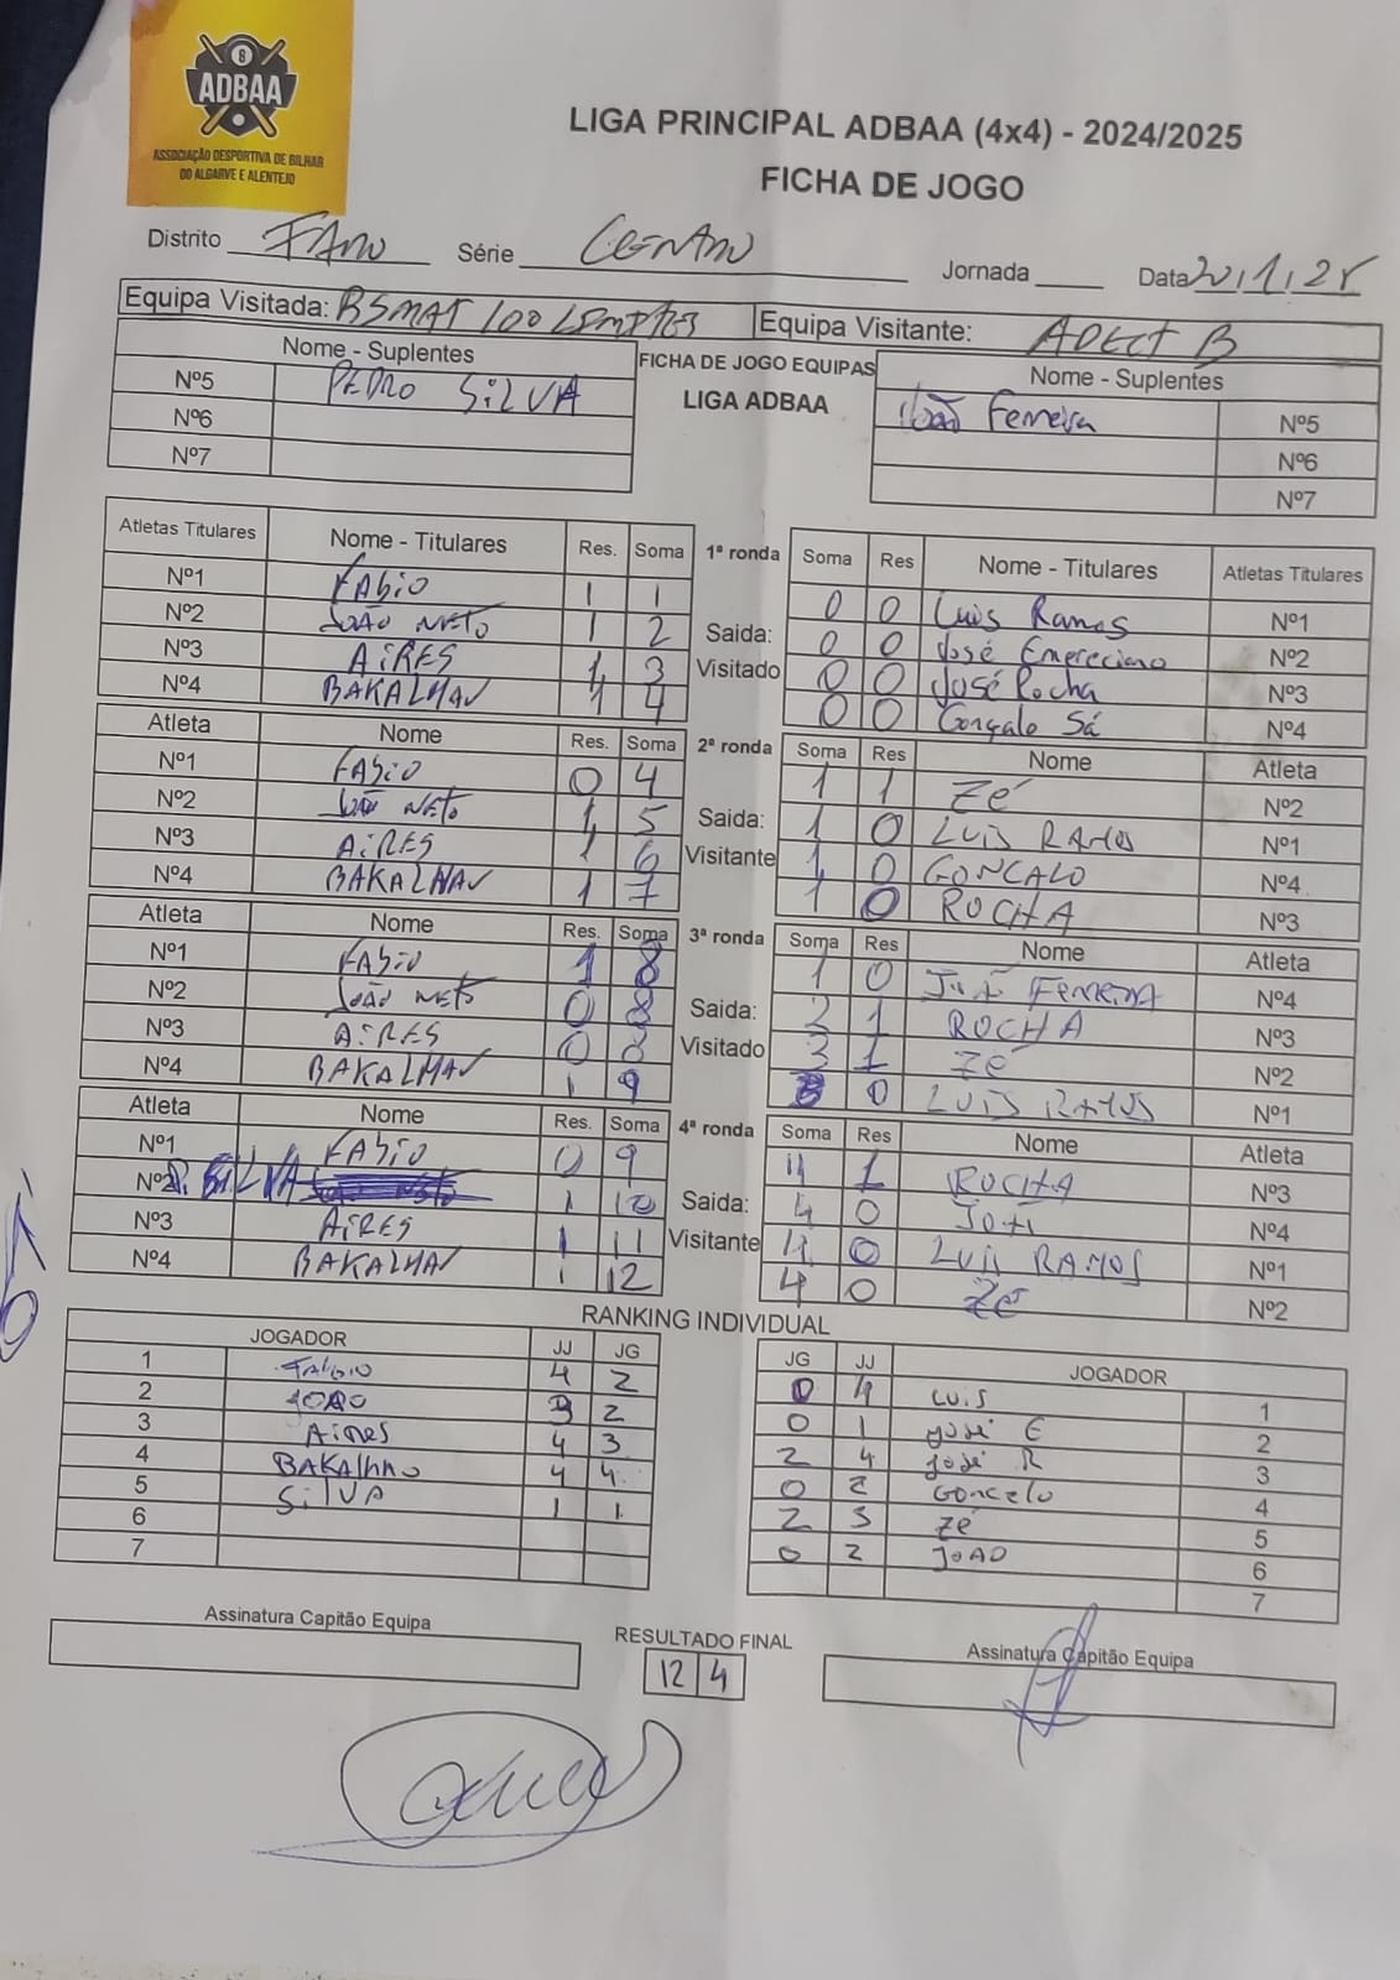 8
ADBAA
ASSOCIAÇÃO DESPORTIVA DE BILHAR
DO ALGARVE E ALENTEJO
LIGA PRINCIPAL ADBAA (4x4) - 2024/2025
FICHA DE JOGO
Distrito Série Jornada Data 20/1/25
Equipa Visitada: Equipa Visitante: ADECT B
Nome - Suplentes FICHA DE JOGO EQUIPAS Nome - Suplentes
Nº5 PEDRO SILVA LIGA ADBAA João Ferreira Nº5
Nº6 Nº6
Nº7 Nº7
Atletas Titulares Nome - Titulares Res. Soma 1ª ronda Soma Res Nome - Titulares Atletas Titulares
Nº1 FABIO 1 1 0 0 Luis Ramos Nº1
Nº2 JOÃO NETO 1 2 Saida: 0 0 José Empreciano Nº2
Nº3 AIRES 1 3 Visitado 0 0 José Rocha Nº3
Nº4 BAKALHAU 1 4 0 0 Gonçalo Sá Nº4
Atleta Nome Res. Soma 2ª ronda Soma Res Nome Atleta
Nº1 FABIO 0 4 1 1 Zé Nº2
Nº2 JOÃO NETO 1 5 Saida: 1 0 LUIS RAMOS Nº1
Nº3 AIRES 1 6 Visitante 1 0 GONCALO Nº4
Nº4 BAKALHAU 1 7 1 0 ROCHA Nº3
Atleta Nome Res. Soma 3ª ronda Soma Res Nome Atleta
Nº1 FABIO 1 8 1 0 João FERREIRA Nº4
Nº2 JOÃO NETO 0 8 Saida: 2 1 ROCHA Nº3
Nº3 AIRES 0 8 Visitado 3 1 ZÉ Nº2
Nº4 BAKALHAU 1 9 3 0 LUIS RAMOS Nº1
Atleta Nome Res. Soma 4ª ronda Soma Res Nome Atleta
Nº1 FABIO 0 9 4 1 ROCHA Nº3
Nº2 P. SILVA 1 10 Saida: 4 0 Nº4
Nº3 AIRES 1 11 Visitante 4 0 LUIS RAMOS Nº1
Nº4 BAKALHAU 1 12 4 0 Zé Nº2
RANKING INDIVIDUAL
JOGADOR JJ JG JG JJ JOGADOR
1 FABIO 4 2 0 4 LUIS 1
2 JOAO 3 2 0 1 José E 2
3 Aires 4 3 2 4 José R 3
4 BAKAlhAO 4 4 0 2 Goncalo 4
5 SilVA 1 1 2 3 Zé 5
6 0 2 JOAO 6
7 7
Assinatura Capitão Equipa RESULTADO FINAL Assinatura Capitão Equipa
12 4